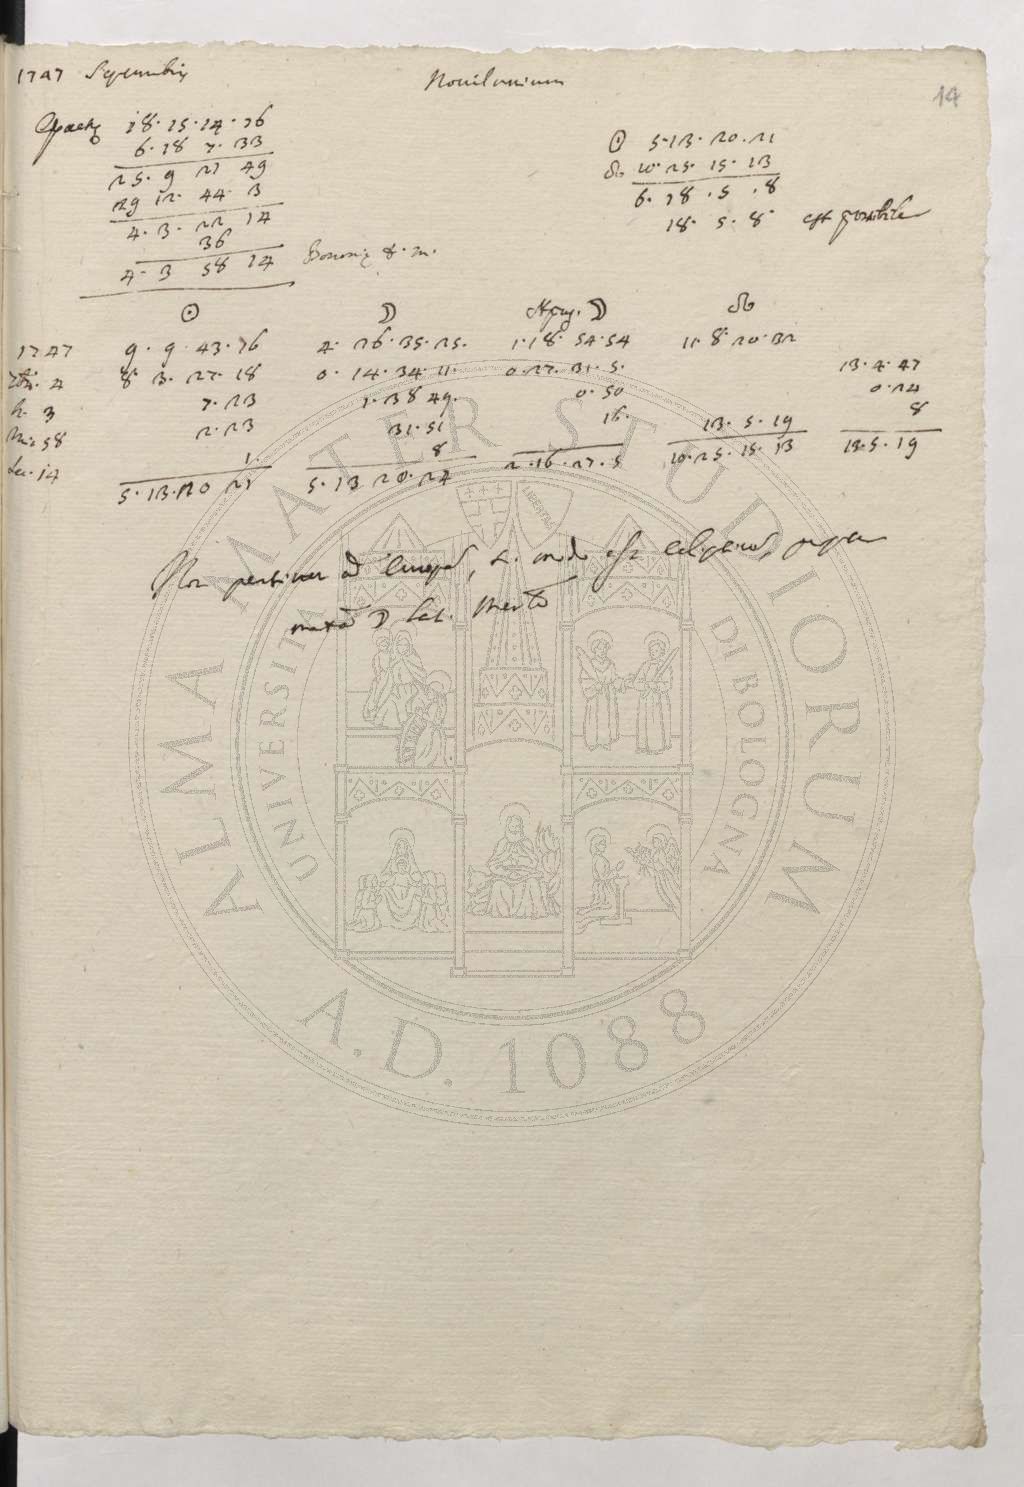 1747 Septembris Novilunium 14
Epactę 18. 15. 14. 16
6. 18 7. 33
25. 9 21 49
29 12. 44. 3
4. 3. 22 14
36
4. 3 58 14 Bononię t. m.
☉ 5. 13. 20. 21
☊ 10. 25. 15. 13
6. 18. 5. 8
18. 5. 8 est possibile
☉ ☽ Apog. ☽ ☊
1747 9. 9. 43. 16 4. 26. 35. 25. 1. 18. 54. 54 11. 8. 20. 32
4 8 3. 27. 18 0. 14. 34. 11. 0. 27. 31. 5. 13. 4. 47
h. 3 7. 23 1. 38 49. 0. 50 0. 24
m. 58 2. 23 31. 51 16. 13. 5. 19 8
sec. 14 1. 8 2. 16. 27. 5 10. 25. 15. 13 13. 5. 19
5. 13. 20 21 5. 13 20. 24
Non pertinet ad Europ, est
☽ lat.
ALMA MATER STUDIORUM
UNIVERSITÀ DI BOLOGNA
LIBERTAS
A.D. 1088